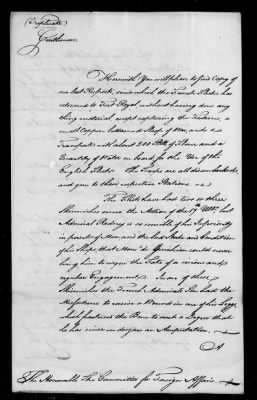 (Triplicate)
Gentlemen
Herewith You will please to find Copy of
our last Respects, since which the French Fleet has
returned to Fort Royal without having done any
thing material except capturing the Fortune, a
small Copper bottomed Sloop of War, and a
Transport with about 200 Bbls of Flour and a
Quantity of Water on board for the Use of the
English Fleet. The Troops are all disembarked,
and gone to their respective Stations.
The Fleets have had two or three
Skirmishes since the Action of the 17th Ulto, but
Admiral Rodney is so sensible of his Inferiority
in point of Men and the bad State and Condition
of his Ships, that Monsr de Guichen could never
bring him to risque the Fate of a serious and
regular Engagement. In one of these
Skirmishes the French Admiral's Son had the
Misfortune to receive a Wound in one of his Legs
which fractured the Bone to such a Degree that
he has since undergone an Amputation.
A
The Honorable The Committee for Foreign Affairs.